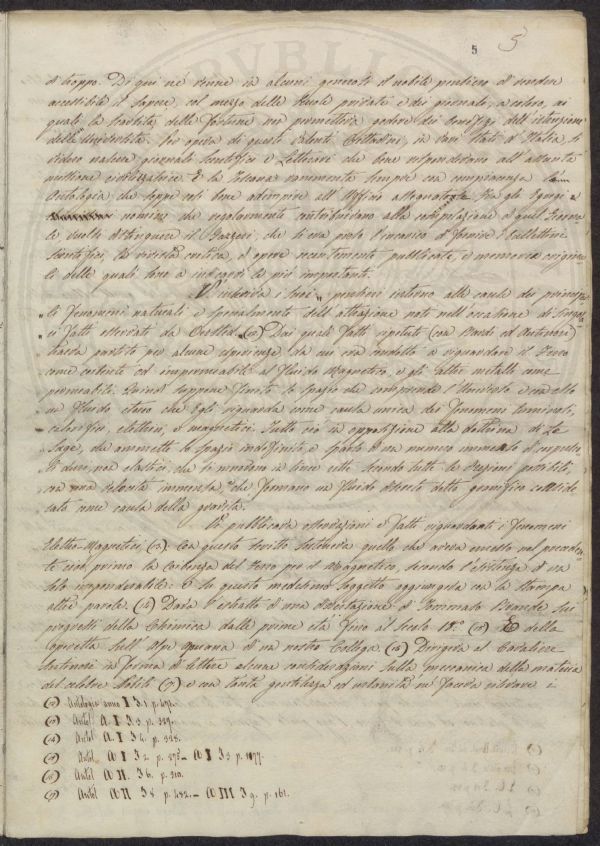 5 5
di troppo. Di qui ne venne in alcuni generosi il nobile pensiero di rendere
accessibile il sapere, col mezzo delle scuole private e dei giornali, a coloro, ai
quali la scarsità delle fortune non permetteva godere dei benefizj dell'istruzione
delle Università. Per opera di questi valenti Cittadini, in varj Stati d'Italia, si
videro nascere giornali scientifici e Letterarj che bene risposero all'assunta
missione civilizzatrice. E la Toscana rammenta sempre con compiacenza l'
Antologia, che seppe così bene adempire all'Uffizio assegnatole. Fra gli Egregj
nomini che regolarmente contribuivano alla compilazione di quel Giornale
si vuole distinguere il Gazzeri, che si era preso l'incarico di fornire i Bullettini
Scientifici, la rivista critica, d'opere recentemente pubblicate, e memorie originali
delle quali sono a indicarsi le più importanti.
V'inseriva i suoi „ pensieri intorno alle cause dei principa-
„ li fenomeni naturali e specialmente dell'attrazione nati nell'occasione di
„ i fatti osservati da Oersted „ (12) Dai quali fatti ripetuti (con Bardi ed Antinori)
trasse partito per alcune esperienze da cui era condotto a riguardare il Ferro
come coibente ed impermeabile al fluido magnetico, e gli altri metalli come
permeabili. Quindi suppone finito lo spazio che comprende l'Universo e con esso
un fluido etereo che Egli riguarda come causa unica dei fenomeni luminosi,
calorifici, elettrici, e magnetici. Tutto ciò in opposizione alla dottrina di Le
Sage, che ammette lo spazio indefinito, e sparso d'un numero immenso di corpuscoli
duri, non elastici, che si muovono in linee rette secondo tutte le direzioni possibili,
con una velocità immensa, che formano un fluido discreto detto gravifico considerato
come causa della gravità.
Vi pubblicava osservazioni e fatti riguardanti i fenomeni
Elettro-Magnetici (13). Con questo scritto sosteneva quello che aveva emesso nel precedente
cioè primo la coibenza del Ferro per il magnetico, secondo l'esistenza d'un
solo imponderabile: E su questo medesimo soggetto aggiungeva con la stampa
altre parole. (14) Dava l'estratto d'una dissertazione di Tommaso Brande sui
progressi della Chimica dalle prime età fino al secolo 18.° (15) E della
operetta sull'Alpe Apuana d'un nostro Collega (16) Dirigeva al Cavaliere
Antinori in forma di lettere alcune considerazioni sulla meccanica della materia
del celebre Nobili (17) e con tanta gentilezza ed urbanità ne faceva rilevare i
(12) Antologia anno I T. 1. p. 471.
(13) Antol. A. I T. 3. p. 329.
(14) Antol. A. I T. 4. p. 328.
(15) Antol. A I T 2. p. 275 – A I T 3 p. 1077.
(16) Antol. A II. T. 6. p. 310.
(17) Antol. A II T 8 p. 432. – A III T 9. p. 161.